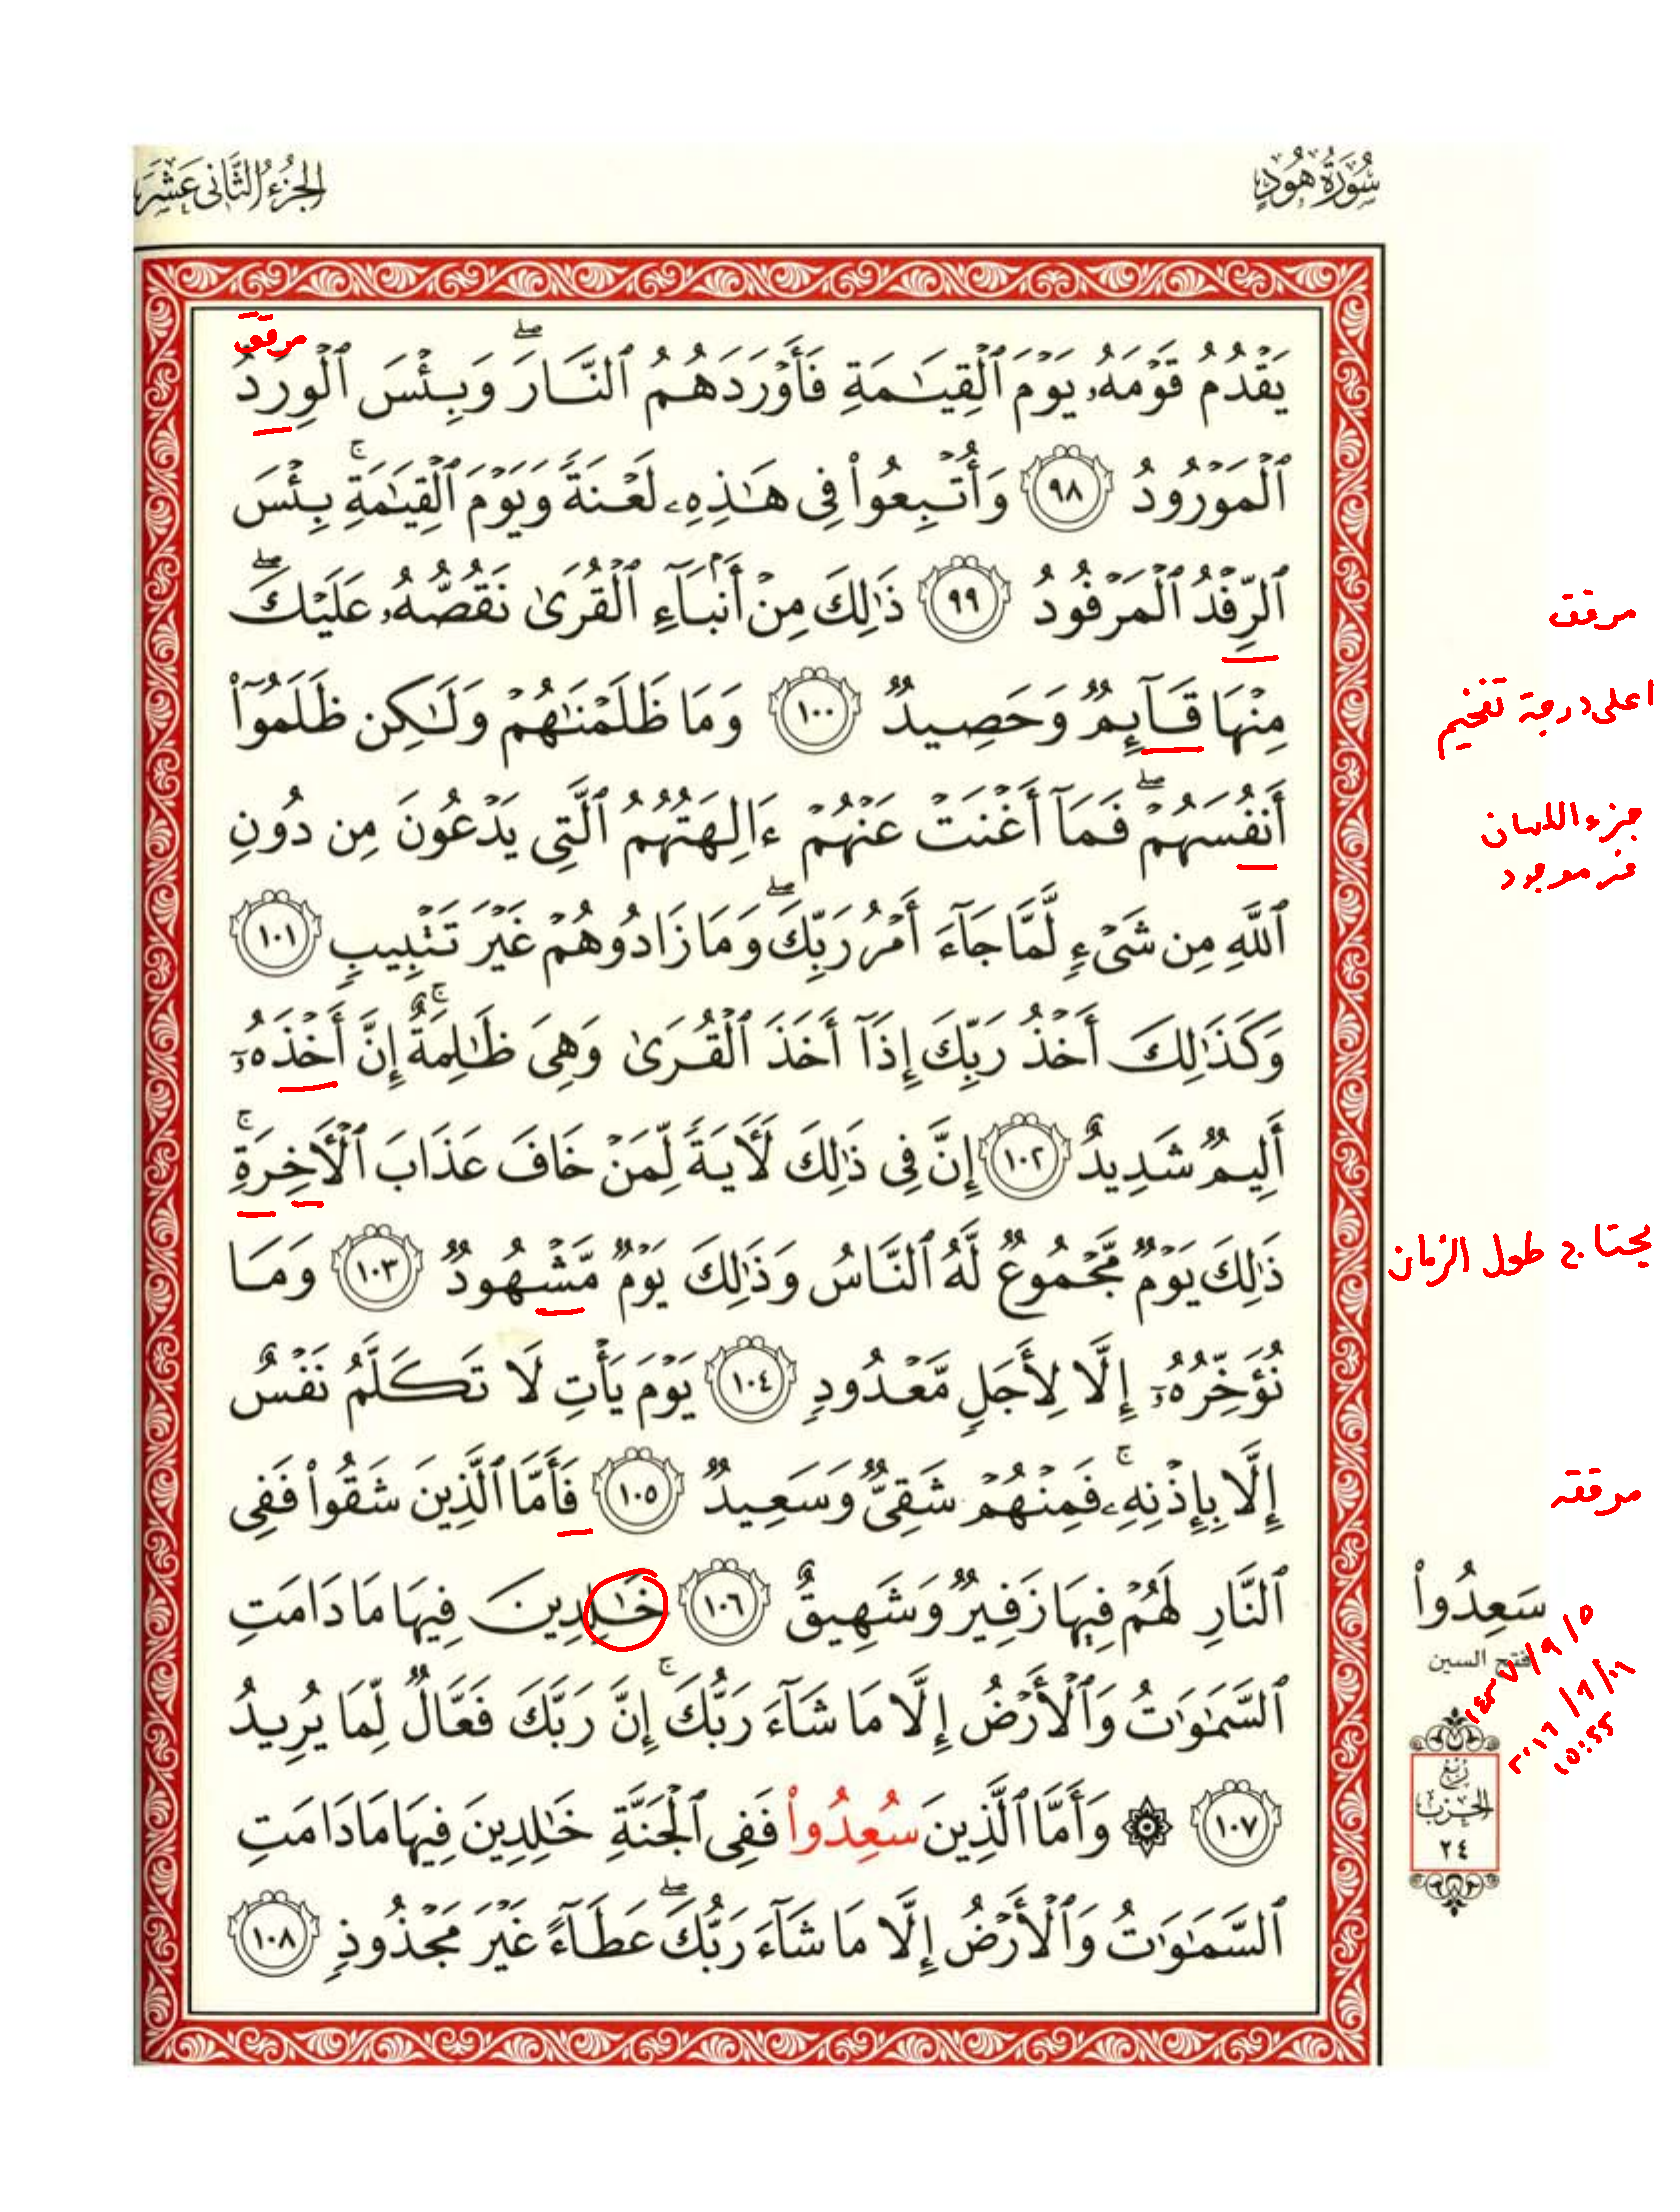 سُورَةُ هُودٍ
الجُزْءُ الثَّانِي عَشَرَ
مرقق
يَقْدُمُ قَوْمَهُۥ يَوْمَ ٱلْقِيَـٰمَةِ فَأَوْرَدَهُمُ ٱلنَّارَ ۖ وَبِئْسَ ٱلْوِرْدُ
ٱلْمَوْرُودُ ٩٨ وَأُتْبِعُوا۟ فِى هَـٰذِهِۦ لَعْنَةً وَيَوْمَ ٱلْقِيَـٰمَةِ ۚ بِئْسَ
ٱلرِّفْدُ ٱلْمَرْفُودُ ٩٩ ذَٰلِكَ مِنْ أَنۢبَآءِ ٱلْقُرَىٰ نَقُصُّهُۥ عَلَيْكَ ۖ
مرقق
مِنْهَا قَآئِمٌ وَحَصِيدٌ ١٠٠ وَمَا ظَلَمْنَـٰهُمْ وَلَـٰكِن ظَلَمُوٓا۟
اعلى درجة تفخيم
أَنفُسَهُمْ ۖ فَمَآ أَغْنَتْ عَنْهُمْ ءَالِهَتُهُمُ ٱلَّتِى يَدْعُونَ مِن دُونِ
جزء اللسان
غير موجود
ٱللَّهِ مِن شَىْءٍ لَّمَّا جَآءَ أَمْرُ رَبِّكَ ۖ وَمَا زَادُوهُمْ غَيْرَ تَتْبِيبٍ ١٠١
وَكَذَٰلِكَ أَخْذُ رَبِّكَ إِذَآ أَخَذَ ٱلْقُرَىٰ وَهِىَ ظَـٰلِمَةٌ ۚ إِنَّ أَخْذَهُۥٓ
أَلِيمٌ شَدِيدٌ ١٠٢ إِنَّ فِى ذَٰلِكَ لَـَٔايَةً لِّمَنْ خَافَ عَذَابَ ٱلْـَٔاخِرَةِ ۚ
ذَٰلِكَ يَوْمٌ مَّجْمُوعٌ لَّهُ ٱلنَّاسُ وَذَٰلِكَ يَوْمٌ مَّشْهُودٌ ١٠٣ وَمَا
يحتاج طول الزمان
نُؤَخِّرُهُۥٓ إِلَّا لِأَجَلٍ مَّعْدُودٍ ١٠٤ يَوْمَ يَأْتِ لَا تَكَلَّمُ نَفْسٌ
إِلَّا بِإِذْنِهِۦ ۚ فَمِنْهُمْ شَقِىٌّ وَسَعِيدٌ ١٠٥ فَأَمَّا ٱلَّذِينَ شَقُوا۟ فَفِى
مرققة
ٱلنَّارِ لَهُمْ فِيهَا زَفِيرٌ وَشَهِيقٌ ١٠٦ خَـٰلِدِينَ فِيهَا مَا دَامَتِ
ٱلسَّمَـٰوَٰتُ وَٱلْأَرْضُ إِلَّا مَا شَآءَ رَبُّكَ ۚ إِنَّ رَبَّكَ فَعَّالٌ لِّمَا يُرِيدُ
١٠٧ وَأَمَّا ٱلَّذِينَ سُعِدُوا۟ فَفِى ٱلْجَنَّةِ خَـٰلِدِينَ فِيهَا مَا دَامَتِ
ٱلسَّمَـٰوَٰتُ وَٱلْأَرْضُ إِلَّا مَا شَآءَ رَبُّكَ ۖ عَطَآءً غَيْرَ مَجْذُوذٍ ١٠٨
سَعِدُوا۟
فتح السين
١٤٣٧/٩/٥
١٥:٥٥
رُبْعُ
الحِزْبِ
٢٤